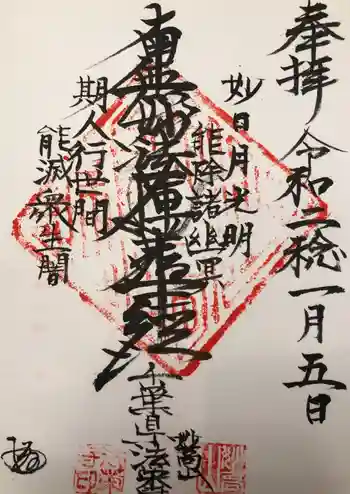 奉拝 令和二稔一月五日
妙日月光明
能除諸幽冥
南無妙法蓮華経
期人行世間
能滅衆生闇
千葉県法華